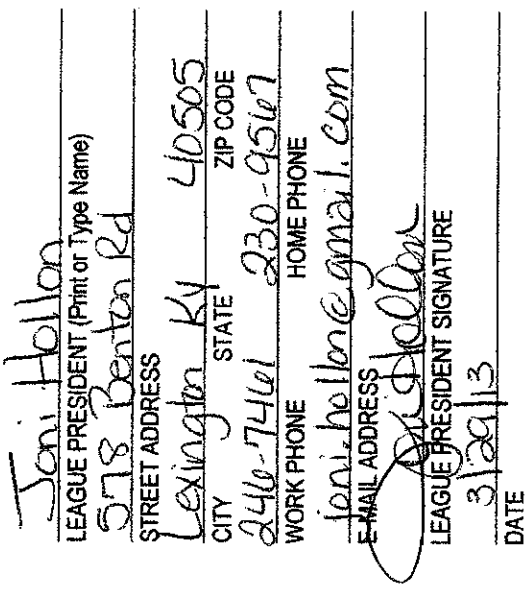 Joni Hollon
LEAGUE PRESIDENT (Print or Type Name)
578 Benton Rd
STREET ADDRESS
Lexington Ky 40505
CITY STATE ZIP CODE
246-7461 230-9567
WORK PHONE HOME PHONE
joni.hollon@gmail.com
E-MAIL ADDRESS
Joni Hollon
LEAGUE PRESIDENT SIGNATURE
3/29/13
DATE